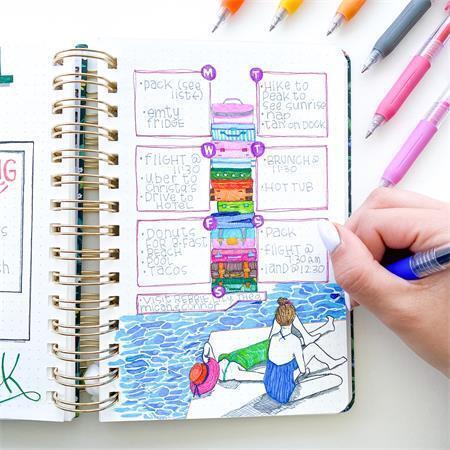 NG
M
• PACK (see
list)
• emty
fridge
T
• Hike to
peak to
see sunrise
• nap
• tan on dock
W
• flight @
11:30
• uber to
christa's
• Drive to
HOTEL
T
• BRUNCH @
11:30
• HOT TUB
F
• Donuts
for B-fast
• Beach
• Pool
• Tacos
S
• Pack
• flight @
• land @ 12:30
S
visit